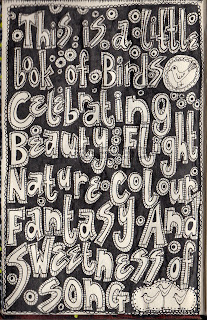 This is a little
book of Birds
Celebrating
Beauty Flight
Nature Colour
Fantasy And
Sweetness of
song